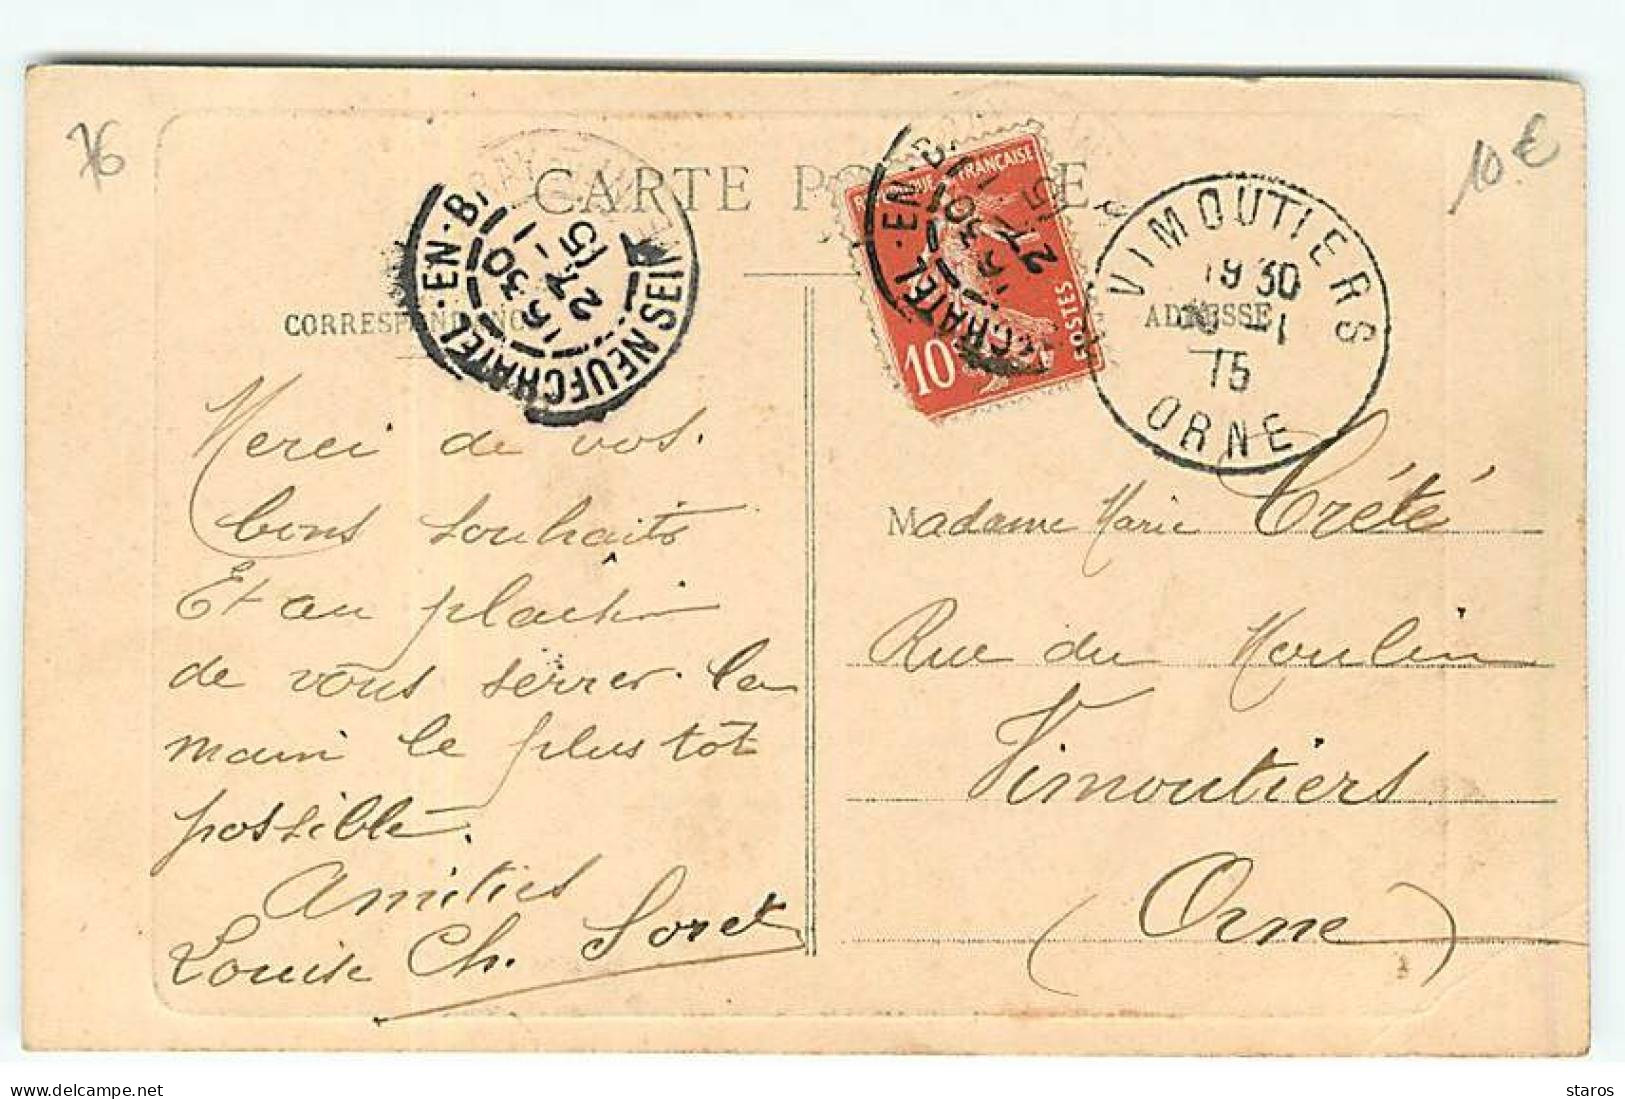 76
10 €
CARTE POSTALE
NEUFCHATEL-EN-BRAY
SEINE INF
16 30
27-1
15
RÉPUBLIQUE FRANÇAISE
POSTES
10
CHATEL-EN-BRAY
16 30
27-1
15
VIMOUTIERS
19 30
-1
15
ORNE
CORRESPONDANCE
ADRESSE
Merci de vos
bons souhaits
Et au plaisir
de vous serrer la
main le plus tôt
possible.
Amitiés
Louise Ch. Soret
Madame Marie Crété
Rue du Moulin
Vimoutiers
(Orne)
staros